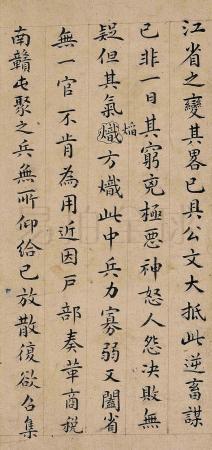 江省之變其畧已具公文大抵此逆畜謀
已非一日其窮兇極惡神怒人怨決敗無
疑但其氣熾焰方熾此中兵力寡弱又闔省
無一官不肯為用近因戶部奏革商稅
南贛屯聚之兵無所仰給已放散復欲召集